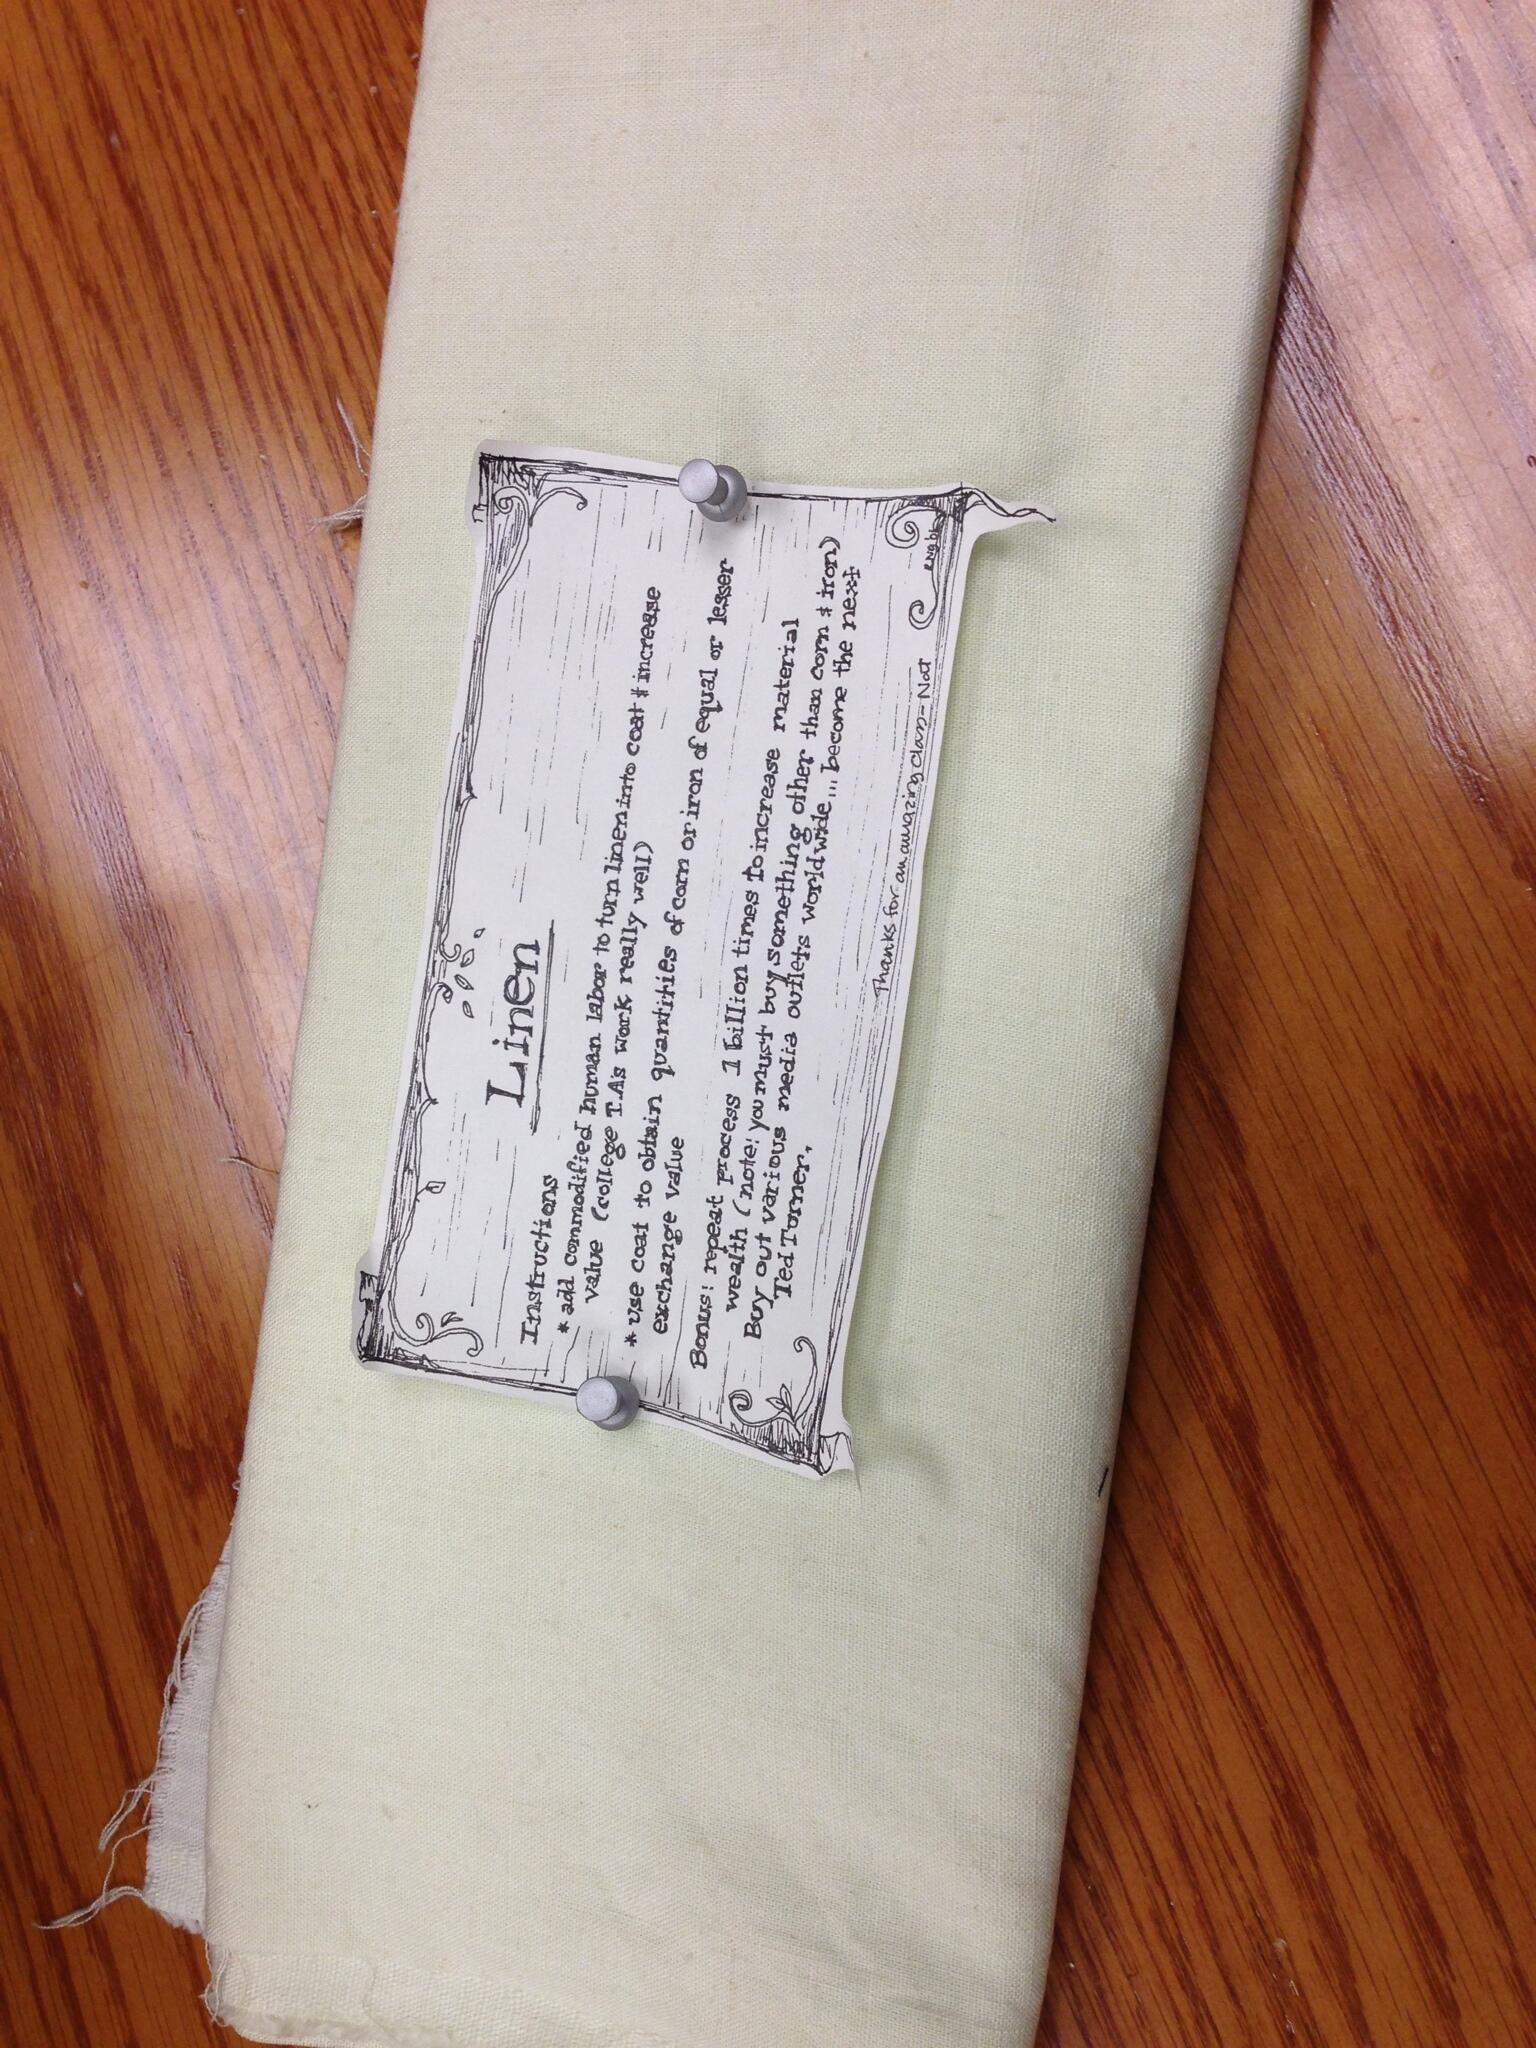 Linen
Instructions
* add commodified human labor to turn linen into coat & increase
value (college T.A.s work really well)
* use coat to obtain quantities of corn or iron of equal or lesser
exchange value
Bonus: repeat process 1 billion times to increase material
wealth (note: you must buy something other than corn & iron)
Buy out various media outlets worldwide... become the next
Ted Turner.
Thanks for an amazing class - Nat